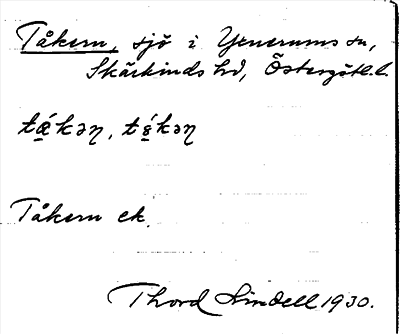 Tåkern, sjö i Yxnerums sn,
Skärkinds hd, Östergötl. l.
tá̱kən, tɛ̱́kən
Tåkern ek.
Thord Lindell 1930.